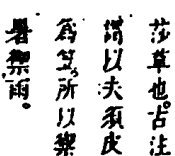 莎草也。古注
謂以夫須皮
為笠。所以禦
暑禦雨。